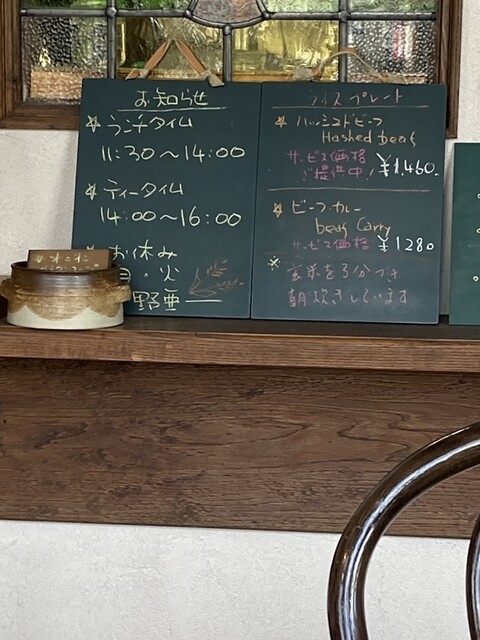 お知らせ
☆ ランチタイム
11:30〜14:00
☆ ティータイム
14:00〜16:00
お休み
・火
野亜
ライスプレート
☆ ハッシュドビーフ
Hashed beaf
サービス価格
ご提供中! ¥1,460.
☆ ビーフ・カレー
beaf Carry
サービス価格 ¥1280
※ 玄米を3分つき
朝炊きしています